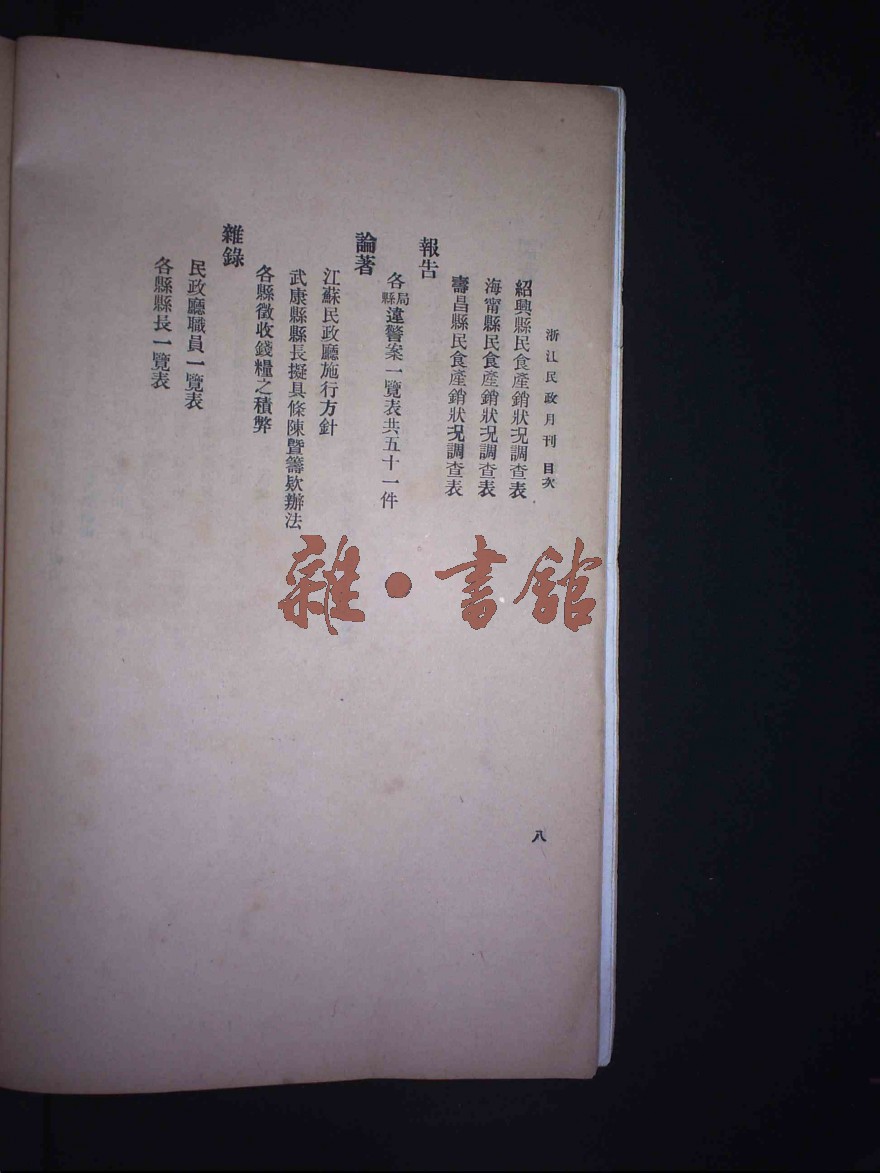 浙江民政月刊 目次
紹興縣民食產銷狀況調查表
海甯縣民食產銷狀況調查表
壽昌縣民食產銷狀況調查表
報告
各局縣違警案一覽表共五十一件
論著
江蘇民政廳施行方針
武康縣縣長擬具條陳暨籌欵辦法
各縣徵收錢糧之積弊
雜錄
民政廳職員一覽表
各縣縣長一覽表
八
雜·書館